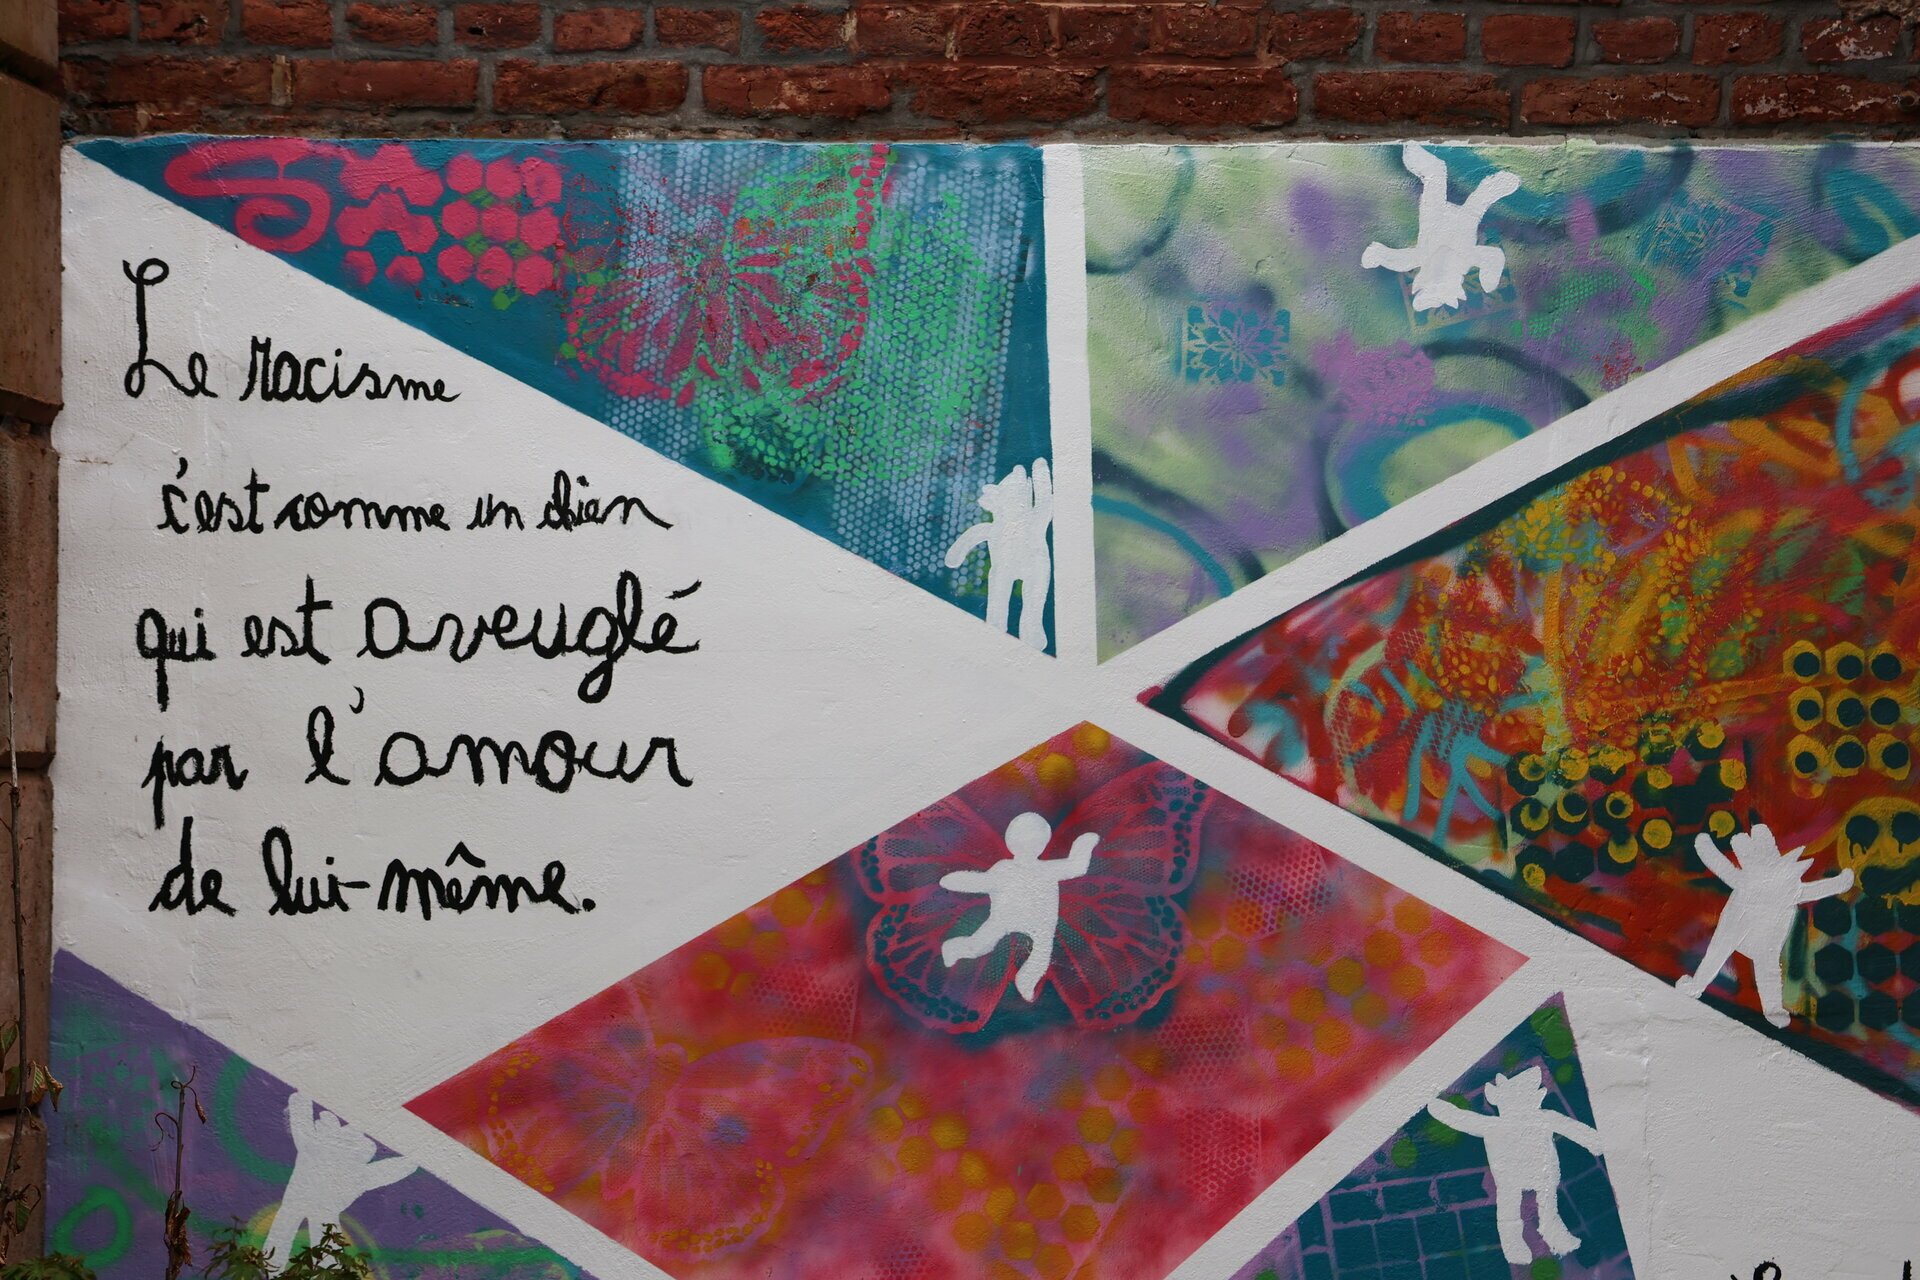 Le racisme
c'est comme un chien
qui est aveuglé
par l'amour
de lui-même.